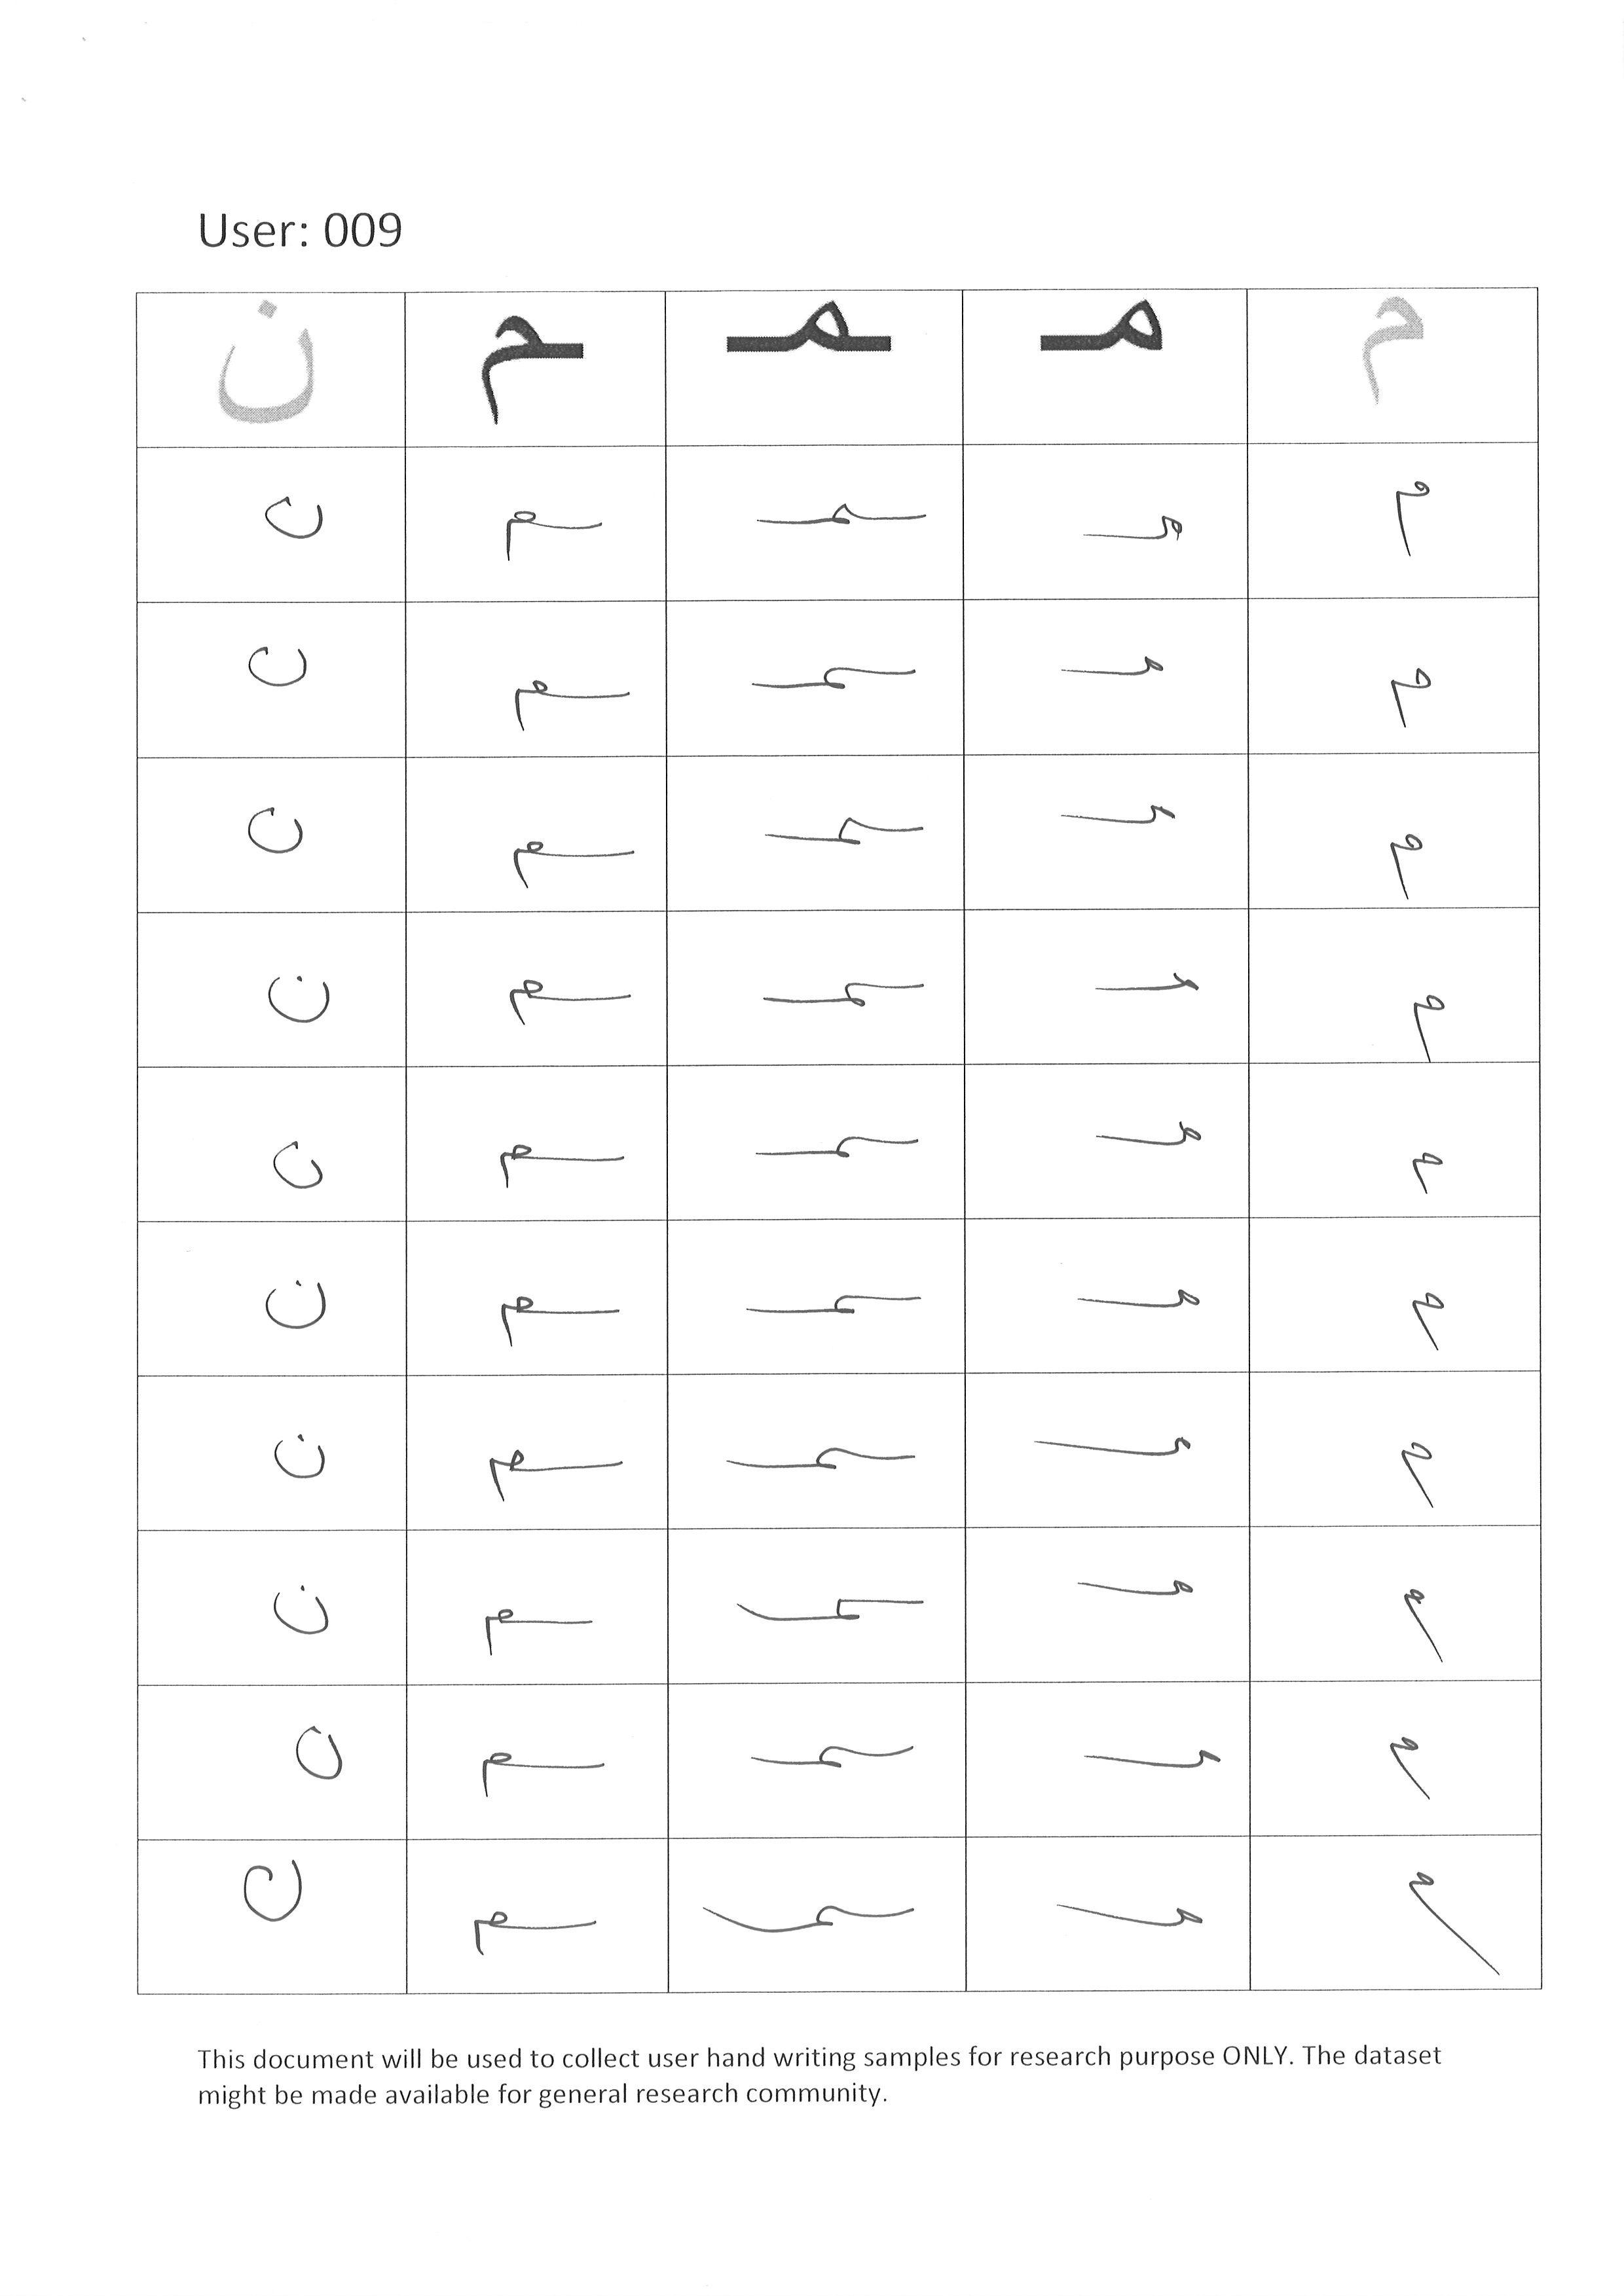 User: 009
م مـ ـمـ ـم ن
م مـ ـمـ ـم ن
م مـ ـمـ ـم ن
م مـ ـمـ ـم ن
م مـ ـمـ ـم ن
م مـ ـمـ ـم ن
م مـ ـمـ ـم ن
م مـ ـمـ ـم ن
م مـ ـمـ ـم ن
م مـ ـمـ ـم ن
م مـ ـمـ ـم ن
This document will be used to collect user hand writing samples for research purpose ONLY. The dataset
might be made available for general research community.